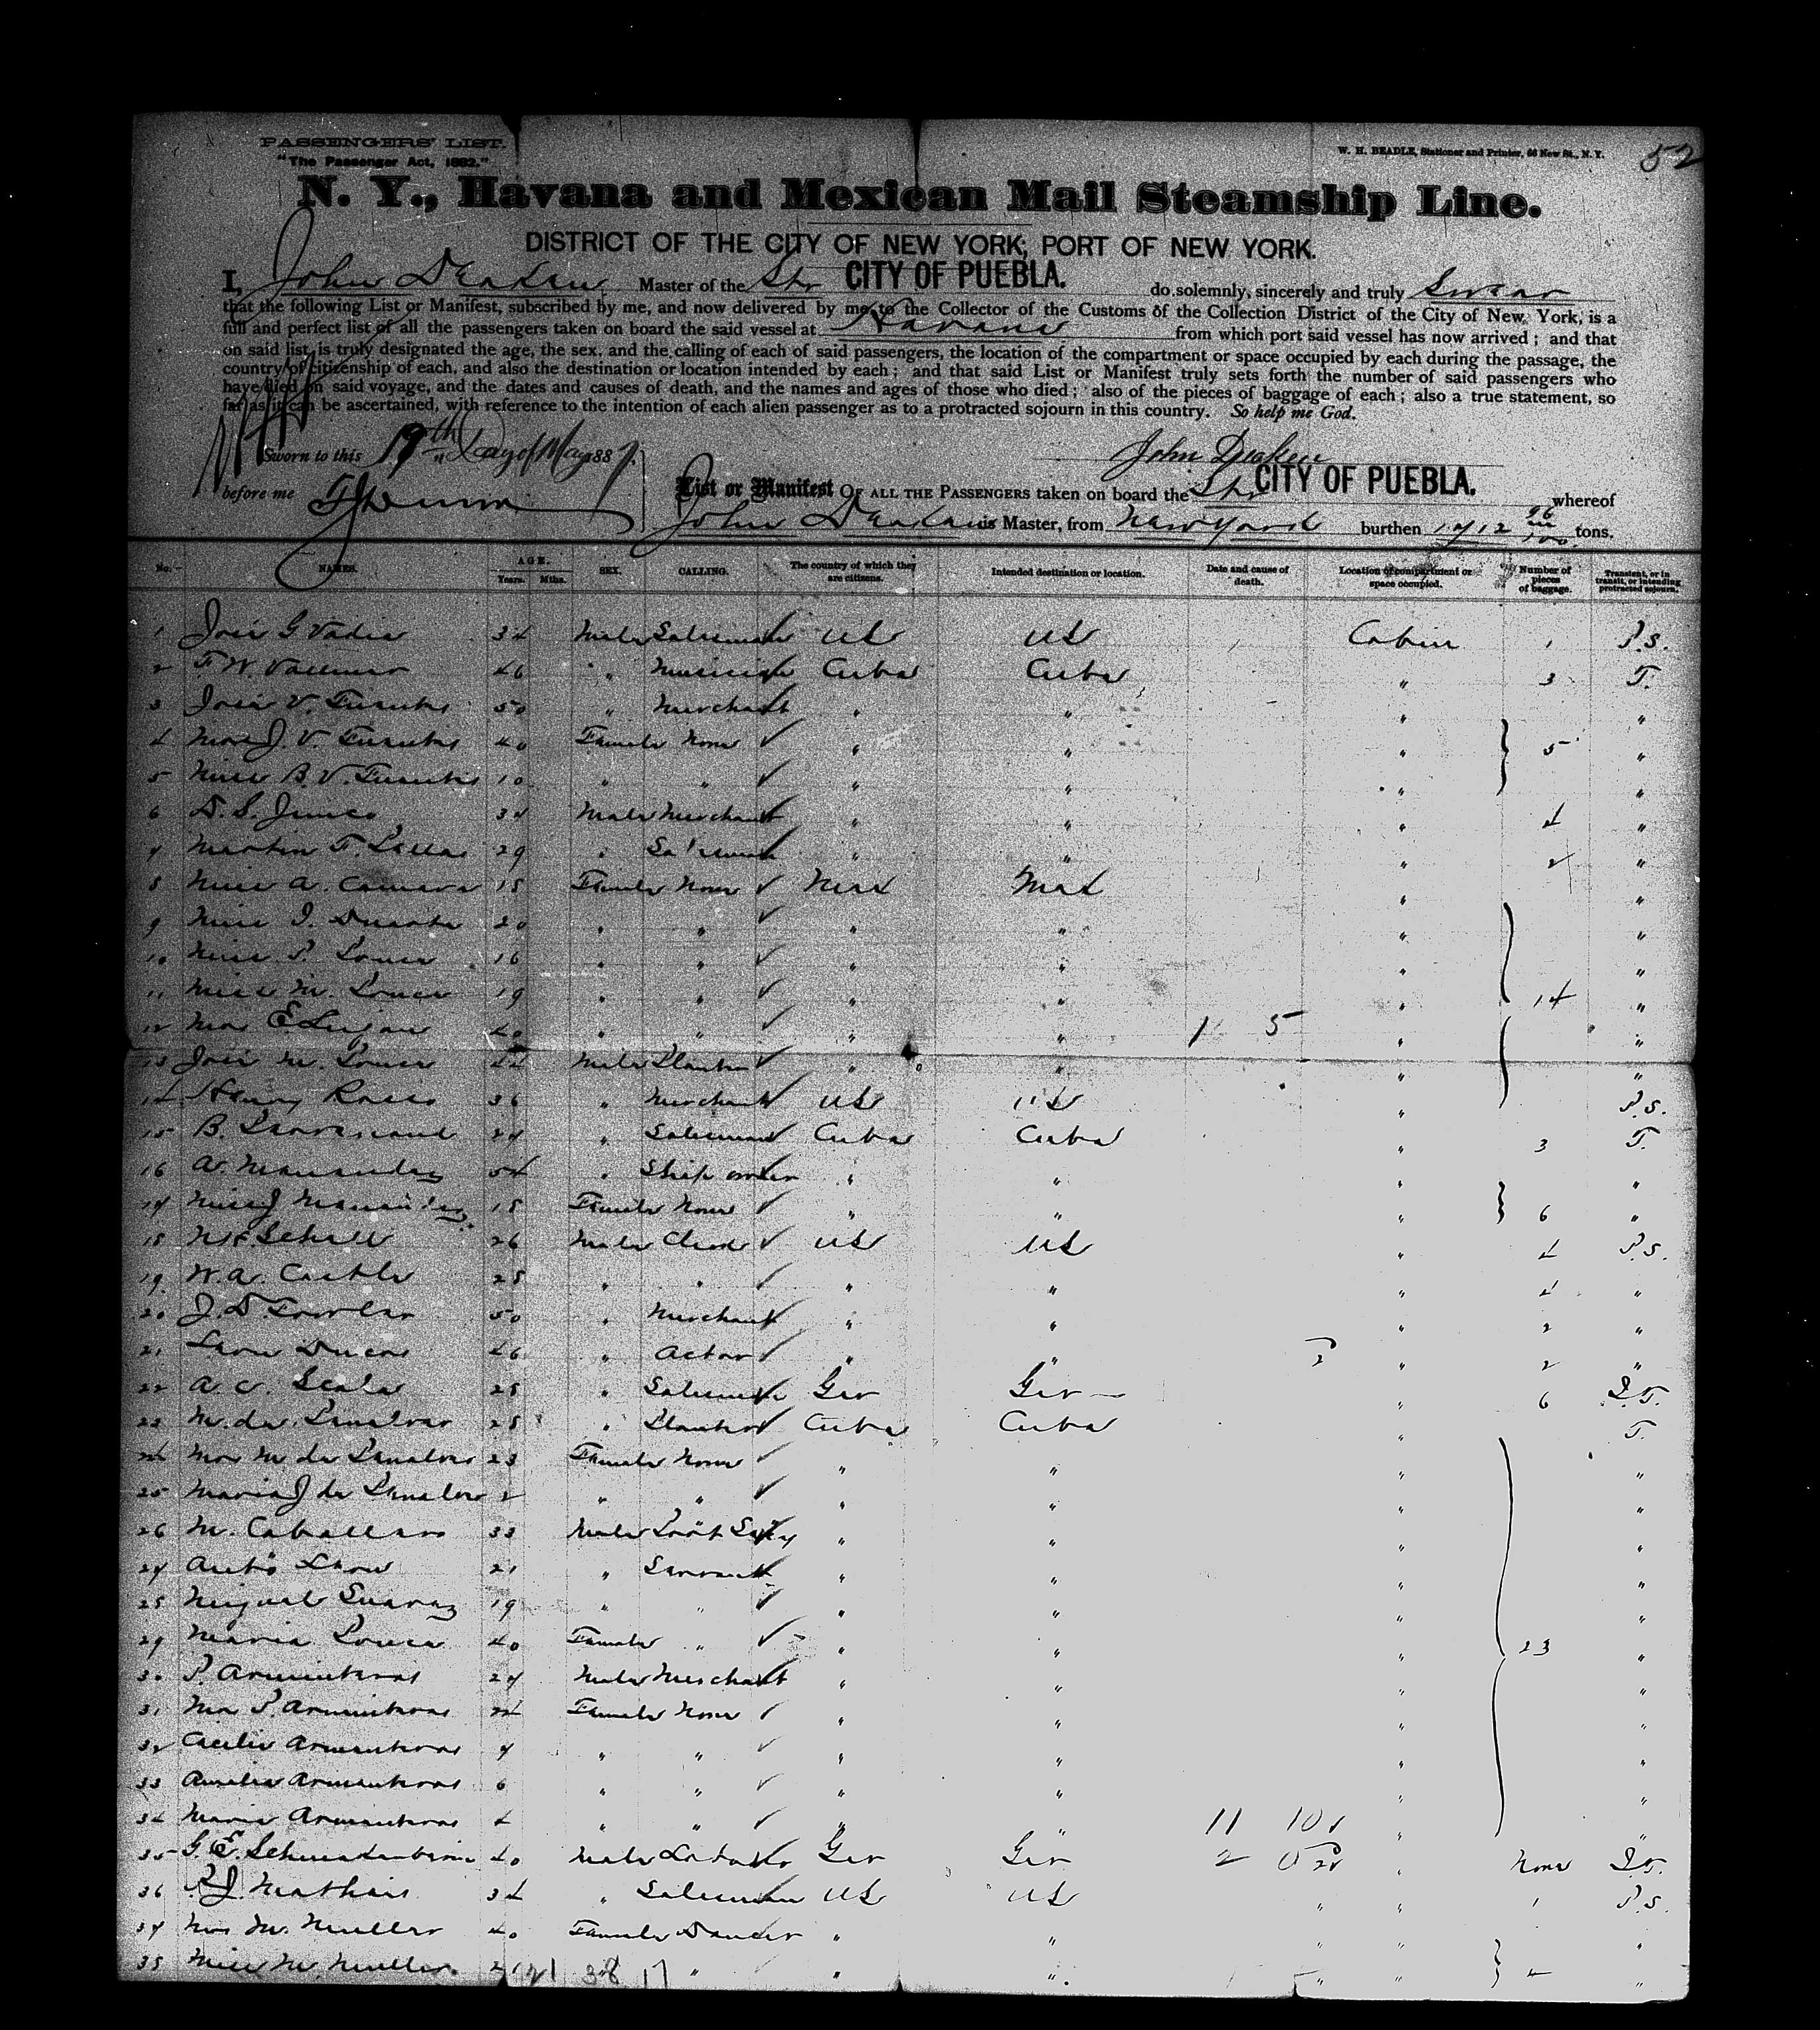 PASSENGERS' LIST.
"The Passenger Act, 1882."
W. H. BEADLE, Stationer and Printer, 66 New St., N. Y.
52
N. Y., Havana and Mexican Mail Steamship Line.
DISTRICT OF THE CITY OF NEW YORK, PORT OF NEW YORK.
I, John Deaken Master of the Str CITY OF PUEBLA. do solemnly, sincerely and truly Swear
that the following List or Manifest, subscribed by me, and now delivered by me to the Collector of the Customs of the Collection District of the City of New York, is a
full and perfect list of all the passengers taken on board the said vessel at Havana from which port said vessel has now arrived; and that
on said list is truly designated the age, the sex, and the calling of each of said passengers, the location of the compartment or space occupied by each during the passage, the
country of citizenship of each, and also the destination or location intended by each; and that said List or Manifest truly sets forth the number of said passengers who
have died on said voyage, and the dates and causes of death, and the names and ages of those who died; also of the pieces of baggage of each; also a true statement, so
far as it can be ascertained, with reference to the intention of each alien passenger as to a protracted sojourn in this country. So help me God.
Sworn to this 19th Day of May 1887.
John Deaken
before me
List or Manifest OF ALL THE PASSENGERS taken on board the Str CITY OF PUEBLA. whereof
John Deaken is Master, from New York burthen 1712 96/100 tons.
No. NAMES. AGE. Years. Mths. SEX. CALLING. The country of which they are citizens. Intended destination or location. Date and cause of death. Location of compartment or space occupied. Number of pieces of baggage. Transient, or in transit, or intending protracted sojourn.
1 José G Male Salesman US US Cabin 1 P.S.
2 F. W. 46 " Musician Cuba Cuba " 3 T.
3 José V. Fuentes 50 " Merchant " " " "
4 Mrs J. V. Fuentes 40 Female None " " " 5 "
5 Miss B. V. Fuentes 10 " " " " " "
6 D. S. Junco 34 Male Merchant " " " 4 "
7 Martin F. 29 " Salesman " " " 2 "
8 Miss A. Camara 18 Female None Mex Mex " "
9 Miss I. Duarte 20 " " " " " "
10 Miss P. 16 " " " " " "
11 Miss M. 19 " " " " " 14 "
12 Mrs E Lujan 40 " " " " 1 5 " "
13 José M. 44 Male Planter " " " "
14 Henry 36 " Merchant US US " P.S.
15 B. 27 " Salesman Cuba Cuba " 3 T.
16 A. Menendez 54 " Ship owner " " " "
17 Miss J Menendez 18 Female None " " " 6 "
18 26 Male Clerk US US " 4 P.S.
19 W. A. Castle 28 " " " " " 4 "
20 J. D. Fowler 50 " Merchant " " " 2 "
21 Leon 46 " Actor " " " 2 "
22 A. C. Scala 28 " Salesman Ger Ger " 6 I.T.
23 M. de Penalver 28 " Planter Cuba Cuba " T.
24 Mrs M de Penalver 23 Female None " " " "
25 Maria J de Penalver 2 " " " " " "
26 M. Caballero 33 Male " " " "
27 Anto Leon 21 " Servant " " " "
28 Miguel Suarez 19 " " " " " "
29 Maria 40 Female " " " " 23 "
30 P. Armenteros 27 Male Merchant " " " "
31 Mrs P. Armenteros 24 Female None " " " "
32 Cecilia Armenteros 7 " " " " " "
33 Amelia Armenteros 6 " " " " " "
34 Maria Armenteros 4 " " " " 11 10 " "
35 G. E. 40 Male Ger Ger 2 " None I.T.
36 P. J. Mathais 34 " Salesman US US " " 1 P.S.
37 Mrs M. Muller 40 Female Dancer " " " " "
38 Miss M. Muller 21 38 17 " " " " " 4 "